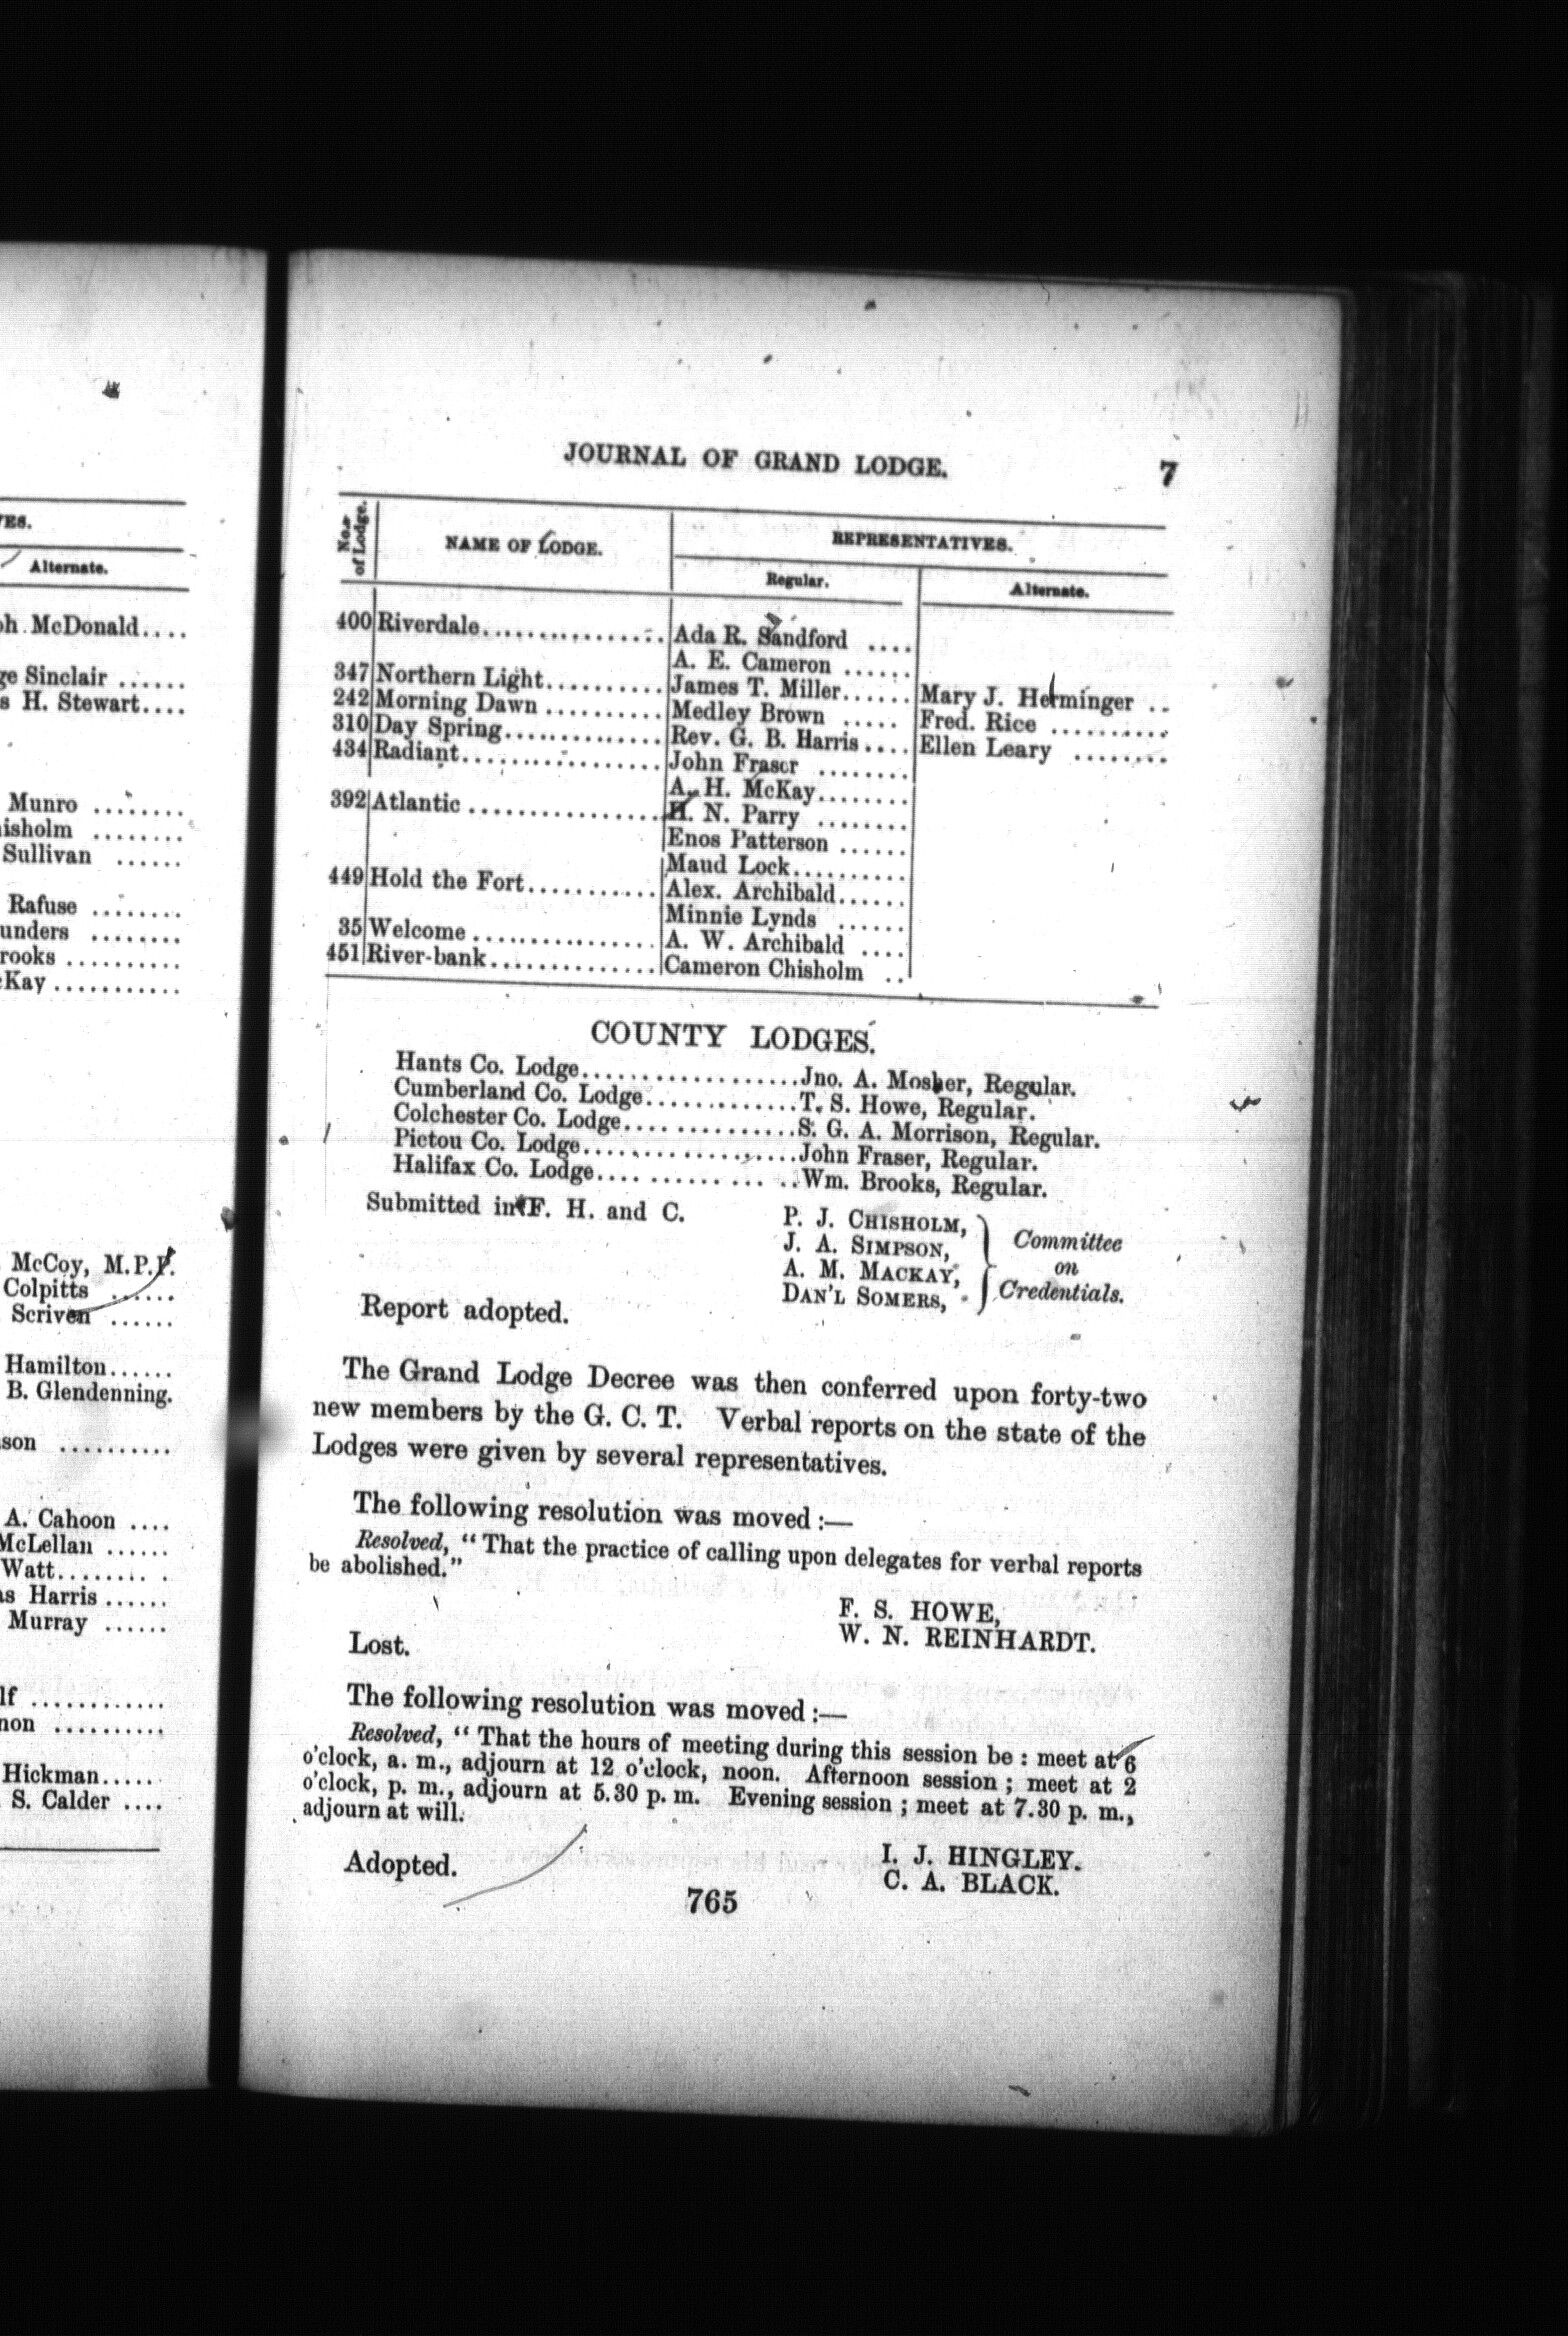 VES.
Alternate.
McDonald....
Sinclair ......
H. Stewart....
Munro ........
Sullivan ......
Rafuse ........
McCoy, M.P.P.
Colpitts ......
Scriven ......
Hamilton......
B. Glendenning.
A. Cahoon ....
McLellan ......
Watt........ .
Harris ......
Murray ......
Hickman.....
S. Calder ....
JOURNAL OF GRAND LODGE. 7
No. of Lodge. NAME OF LODGE. REPRESENTATIVES.
Regular. Alternate.
400 Riverdale................ Ada R. Sandford ....
A. E. Cameron ......
347 Northern Light.......... James T. Miller...... Mary J. Herminger ..
242 Morning Dawn .......... Medley Brown ..... Fred. Rice ..........
310 Day Spring.............. Rev. G. B. Harris .... Ellen Leary ........
434 Radiant.................. John Fraser ........
A. H. McKay........
392 Atlantic ................. H. N. Parry ........
Enos Patterson ......
Maud Lock..........
449 Hold the Fort............ Alex. Archibald......
Minnie Lynds ......
35 Welcome ................ A. W. Archibald ....
451 River-bank............... Cameron Chisholm ..
COUNTY LODGES.
Hants Co. Lodge...................Jno. A. Mosher, Regular.
Cumberland Co. Lodge.............T. S. Howe, Regular.
Colchester Co. Lodge...............S. G. A. Morrison, Regular.
Pictou Co. Lodge...................John Fraser, Regular.
Halifax Co. Lodge.... ......... ... ..Wm. Brooks, Regular.
Submitted in F. H. and C.
P. J. CHISHOLM,
J. A. SIMPSON,
A. M. MACKAY,
DAN'L SOMERS,
Committee
on
Credentials.
Report adopted.
The Grand Lodge Decree was then conferred upon forty-two
new members by the G. C. T. Verbal reports on the state of the
Lodges were given by several representatives.
The following resolution was moved :—
Resolved, "That the practice of calling upon delegates for verbal reports
be abolished."
F. S. HOWE,
W. N. REINHARDT.
Lost.
The following resolution was moved :—
Resolved, "That the hours of meeting during this session be : meet at 6
o'clock, a. m., adjourn at 12 o'clock, noon. Afternoon session ; meet at 2
o'clock, p. m., adjourn at 5.30 p. m. Evening session ; meet at 7.30 p. m.,
adjourn at will.
I. J. HINGLEY.
C. A. BLACK.
Adopted.
765